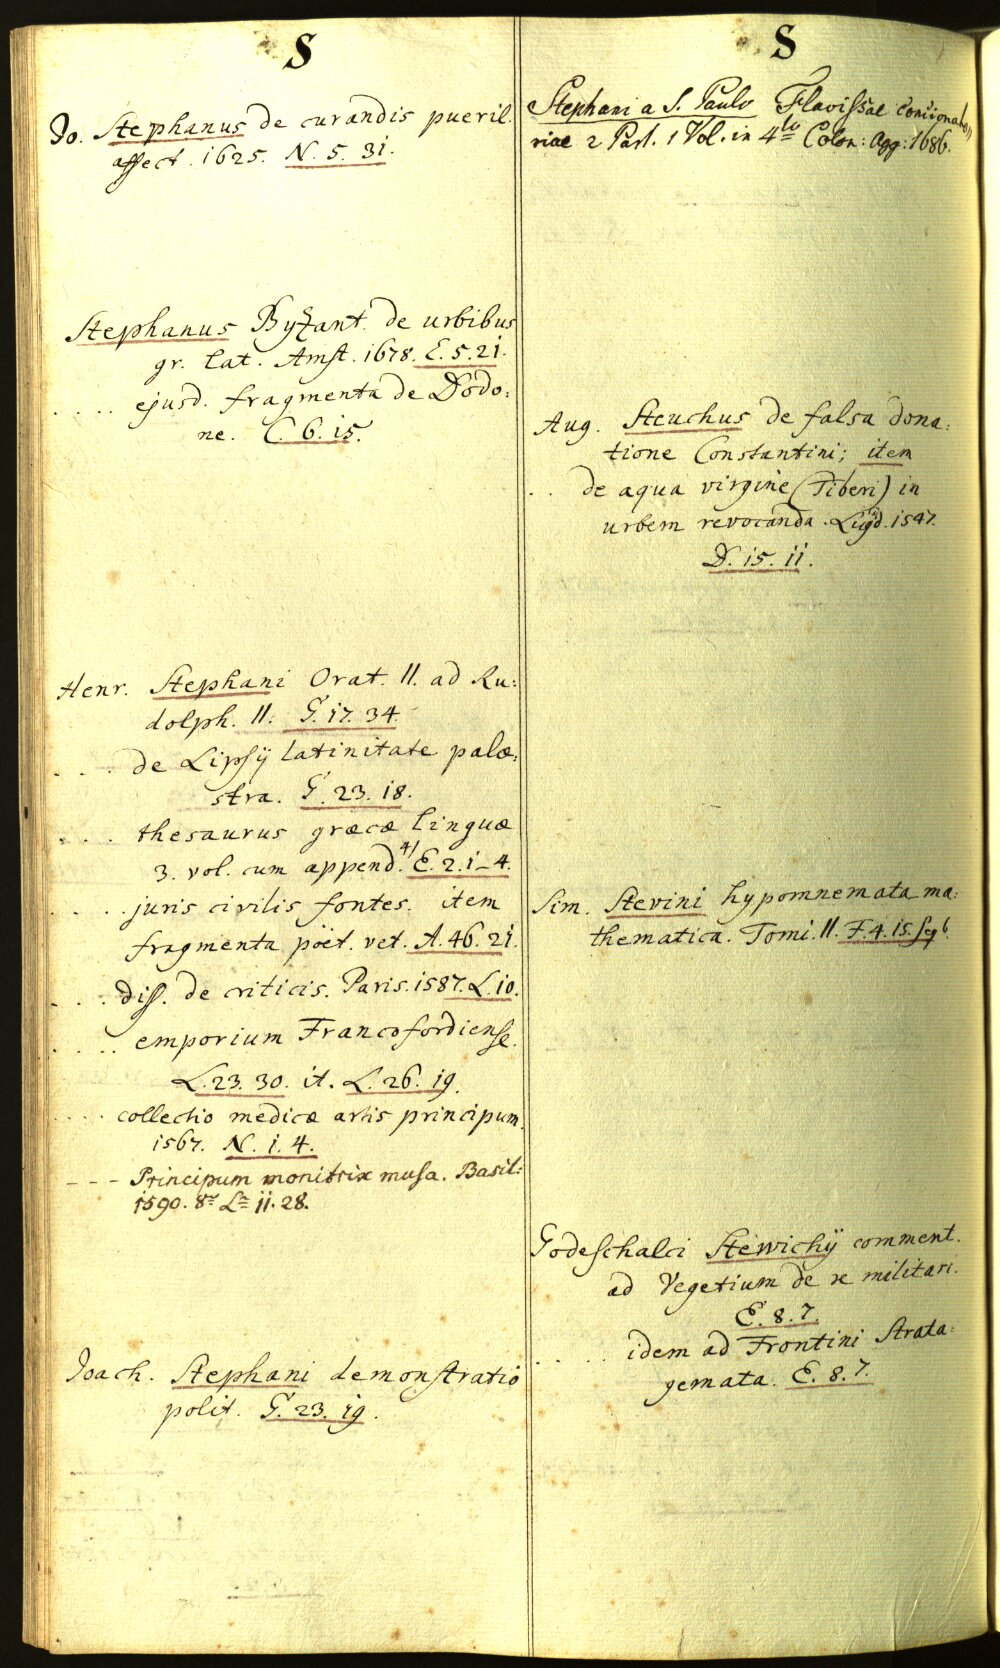 S
Jo. Stephanus de curandis pueril.
affect. 1625. N. 5. 31.
Stephanus Byzant. de urbibus
gr. lat. Amst. 1678. E. 5. 21.
.... ejusd. fragmenta de Dodo:
ne. C. 6. 15.
Henr. Stephani Orat. II. ad Ru:
dolph. II. G. 17. 34.
.... de Lipsÿ latinitate palæ:
stra. G. 23. 18.
.... thesaurus græcæ linguæ
3. vol. cum append. 4/ E. 2. 1–4.
.... juris civilis fontes. item
fragmenta pöet. vet. A. 46. 21.
.... diss. de criticis. Paris. 1587. L. 10.
.... emporium Francofordiense.
L. 23. 30. it. L. 26. 19.
.... collectio medicæ artis principum.
1567. N. 1. 4.
--- Principum monitrix musa. Basil:
1590. 8º Lª 11. 28.
Joach. Stephani demonstratio
polit. G. 23. 19.
S
Stephani a S. Paulo Flavissae Concionato,
riae 2 Part. 1 Vol. in 4to Colon: Agg: 1686.
Aug. Steuchus de falsa dona:
tione Constantini; item
.. de aqua virgine (Tiberi) in
urbem revocanda. Lugd. 1547.
D. 15. 11.
Sim. Stevini hypomnemata ma:
thematica. Tomi. II. F. 4. 15.
Godeschalci Stewichÿ comment.
ad Vegetium de re militari.
E. 8. 7.
..... idem ad Frontini Strata:
gemata. E. 8. 7.